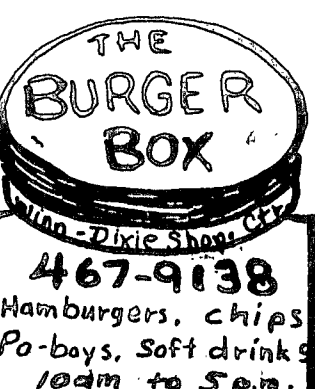 THE
BURGER
BOX
Winn-Dixie Shop. Ctr.
467-9138
Hamburgers, chips
Po-boys, Soft drinks
10am to 5pm.